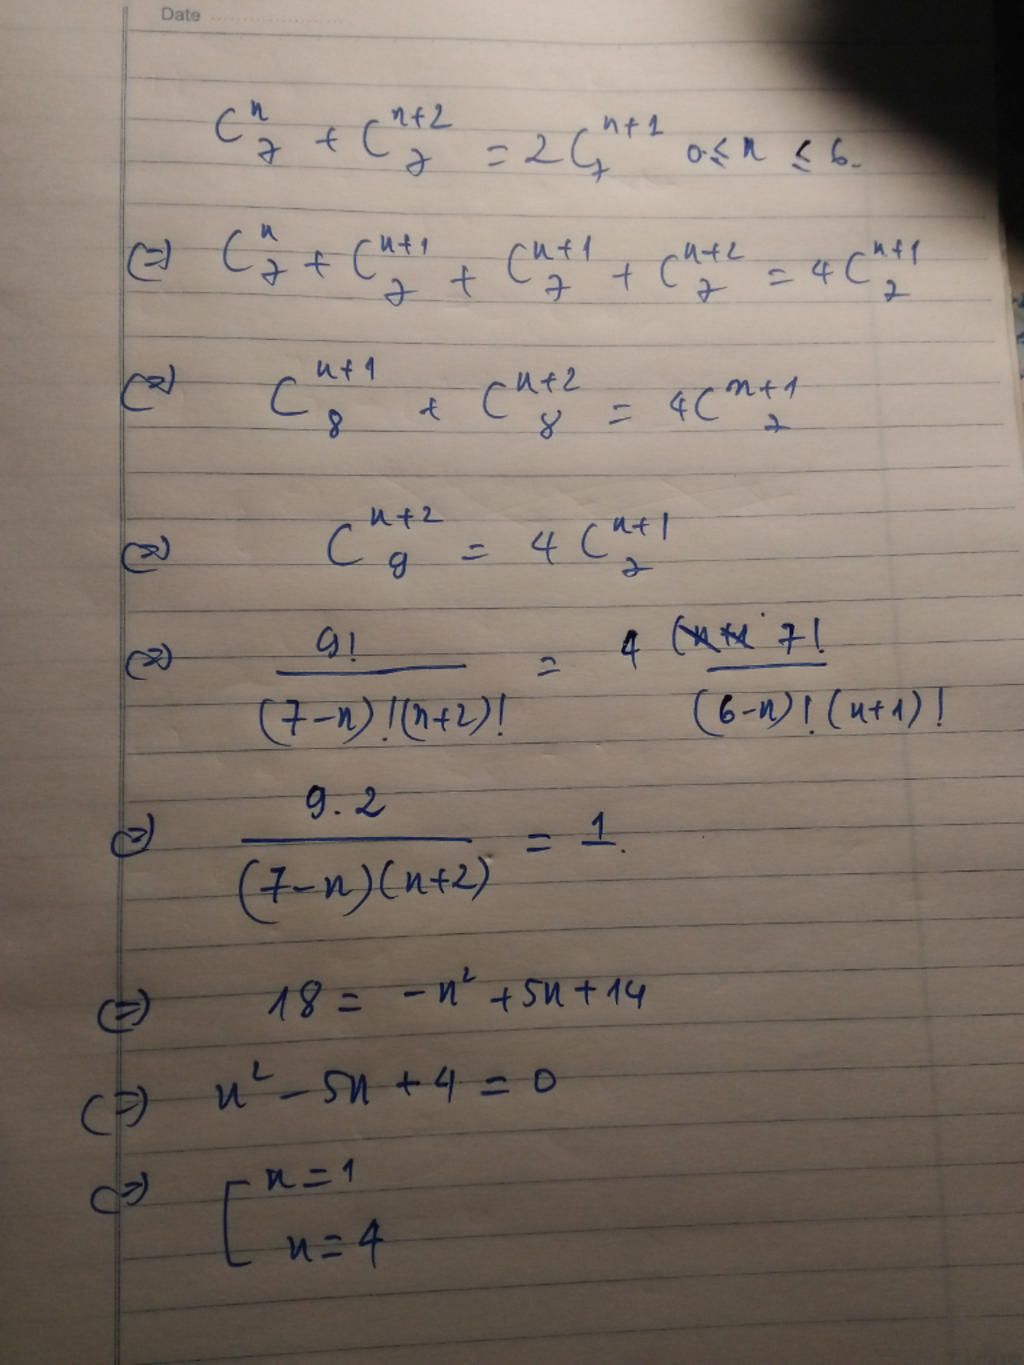 Date
C_7^n + C_7^{n+2} = 2C_7^{n+1} 0 ≤ n ≤ 6.
(=) C_7^n + C_7^{n+1} + C_7^{n+1} + C_7^{n+2} = 4C_7^{n+1}
(=) C_8^{n+1} + C_8^{n+2} = 4C_7^{n+1}
(=) C_9^{n+2} = 4C_7^{n+1}
(=) 9!/((7-n)!(n+2)!) = 4 7!/((6-n)!(n+1)!)
(=) 9.2/((7-n)(n+2)) = 1.
(=) 18 = -n² + 5n + 14
(=) n² - 5n + 4 = 0
(=) [ n = 1
n = 4